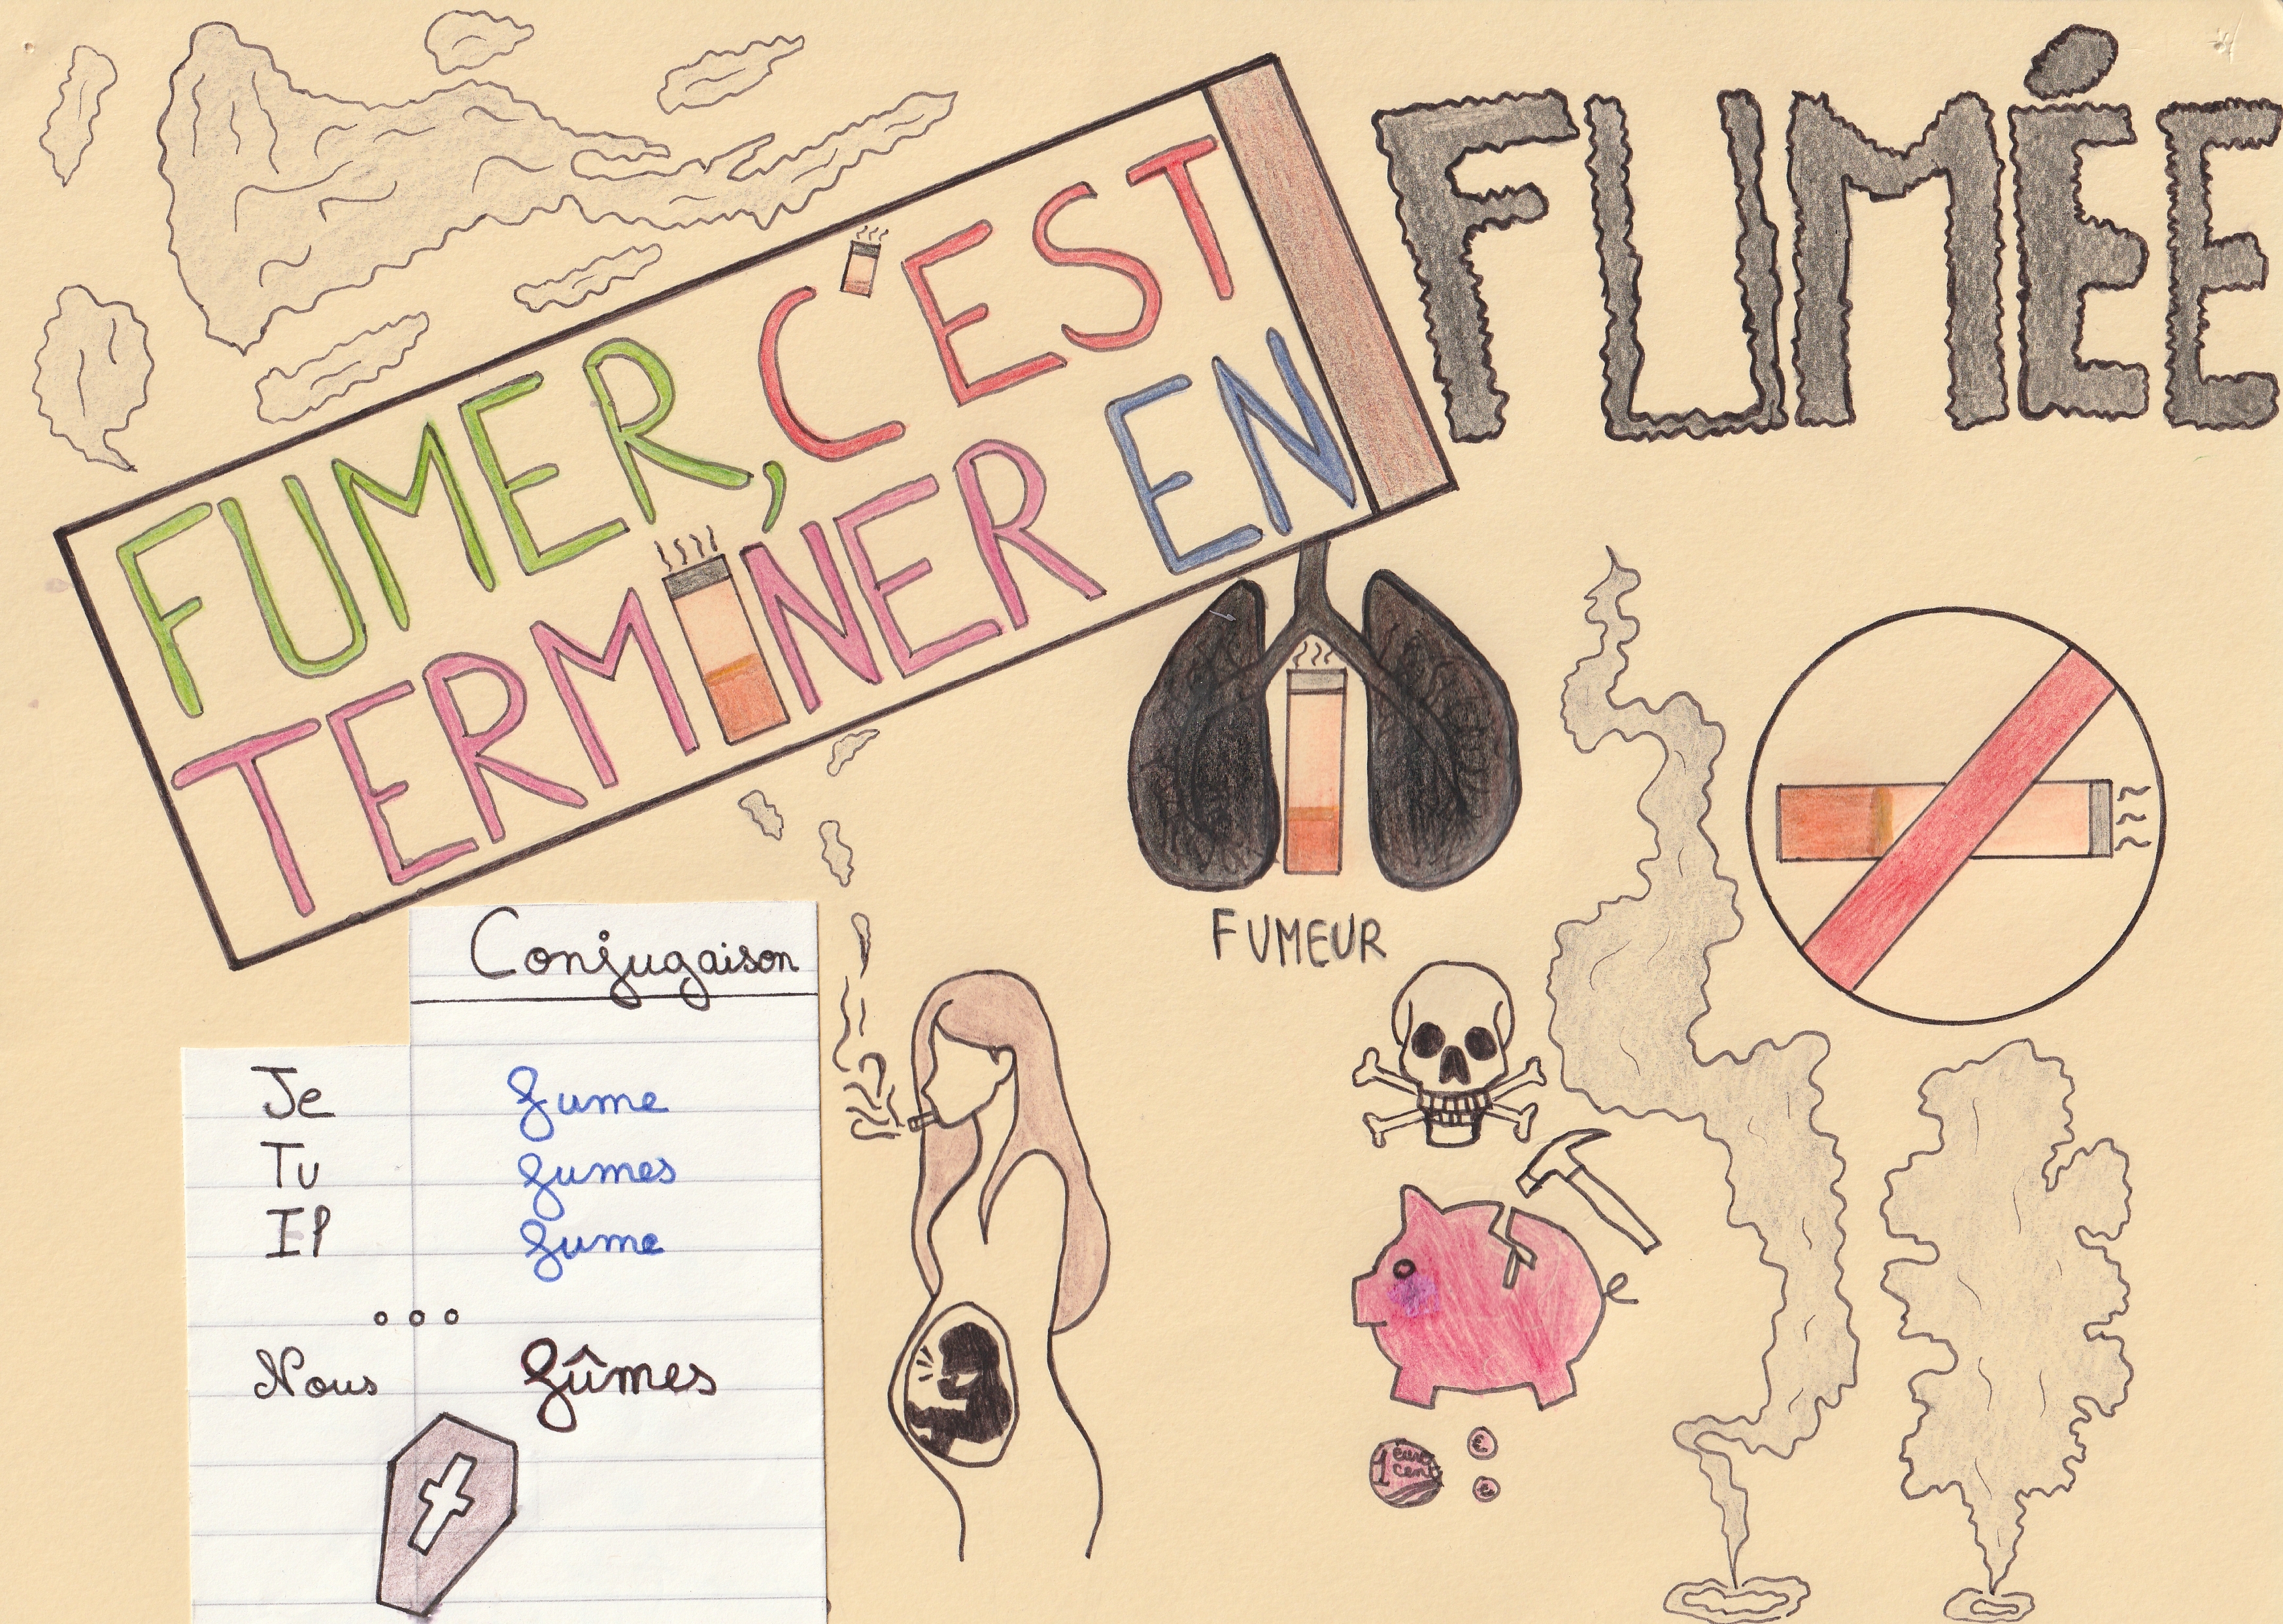 FUMER, C'EST
TERMINER EN
FUMÉE
FUMEUR
Conjugaison
Je fume
Tu fumes
Il fume
...
Nous fûmes
1 euro
cent
€